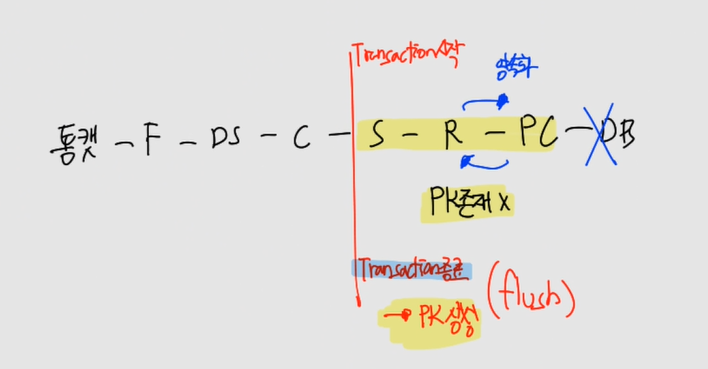 Transaction시작
영속화
톰캣 - F - DS - C - S - R - PC - DB
PK존재 X
Transaction종료
(flush)
→ PK생성